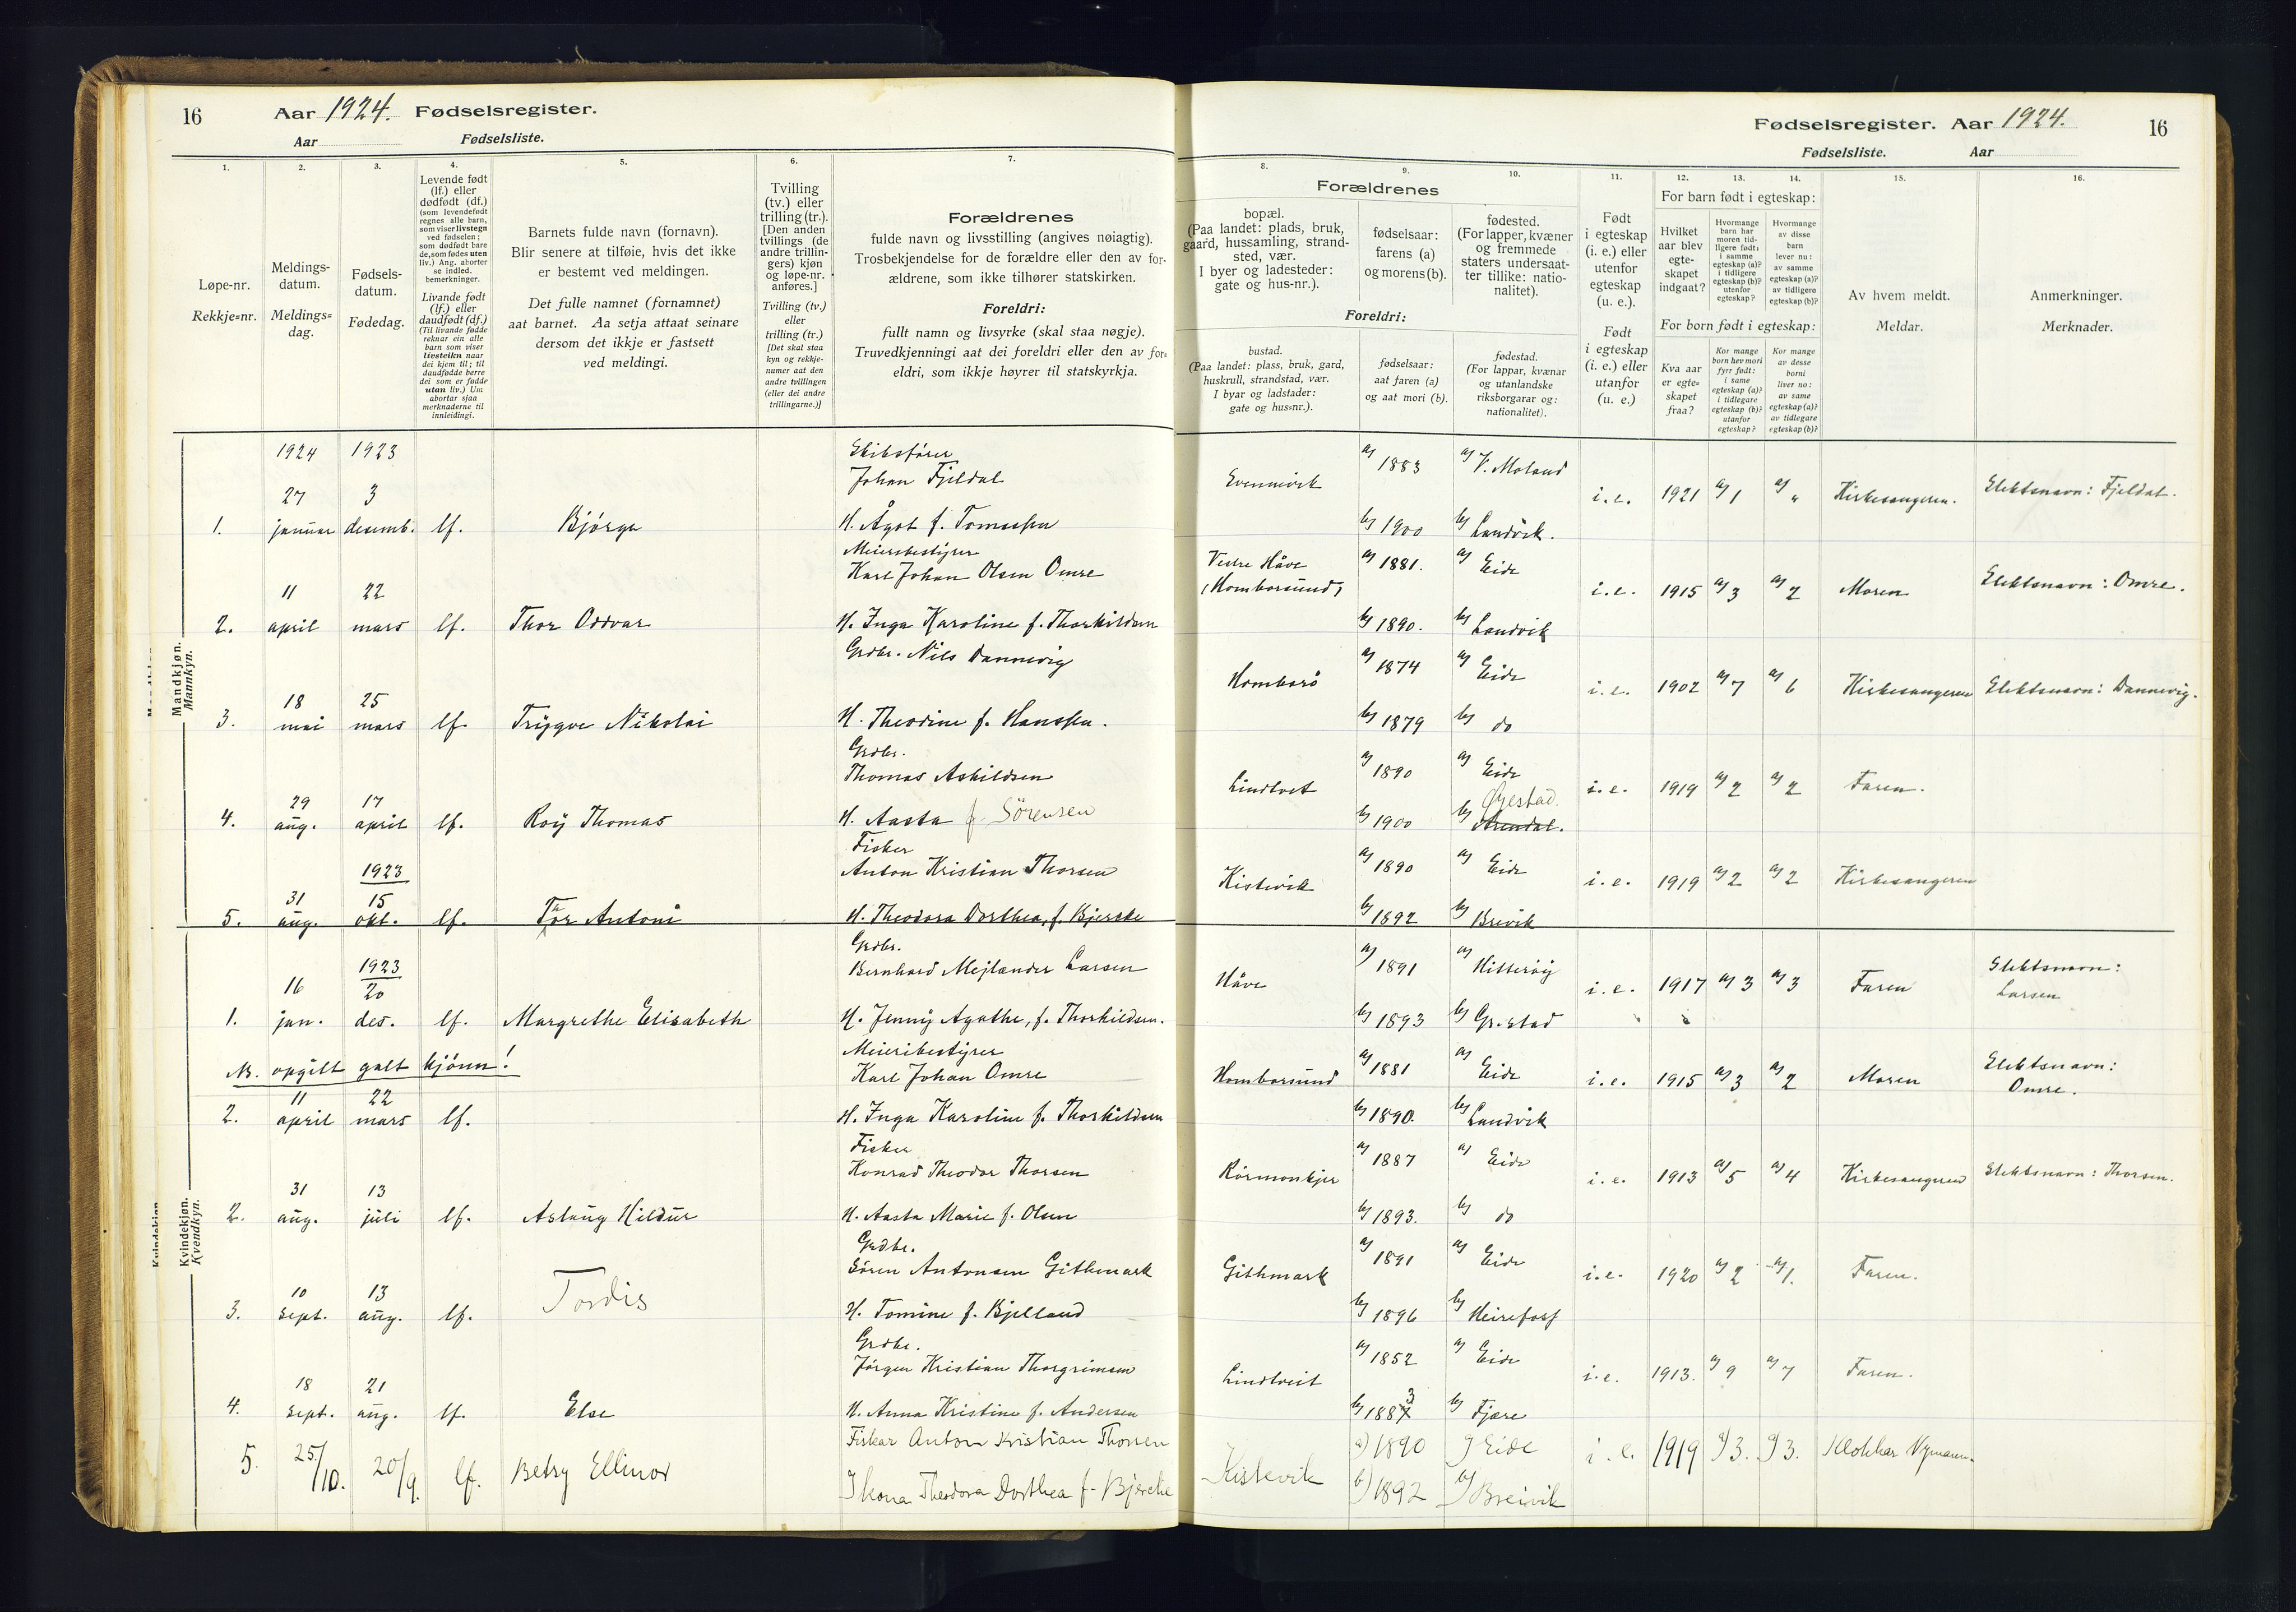 16 Aar 1924. Fødselsregister.
Aar Fødselsliste.
Fødselsregister. Aar 1924. 16
Fødselsliste. Aar
1. 2. 3. 4. 5. 6. 7. 8. 9. 10. 11. 12. 13. 14. 15. 16.
Løpe-nr.
Rekkje=nr.
Meldings-
datum.
Meldings=
dag.
Fødsels-
datum.
Fødedag.
Levende født
(lf.) eller
dødfødt (df.)
(som levendefødt
regnes alle barn,
som viser livstegn
ved fødselen;
som dødfødt bare
de, som fødes uten
liv.) Ang. aborter
se indled.
bemerkninger.
Livande født
(lf.) eller
daudfødt (df.)
(Til livande fødde
reknar ein alle
barn som viser
livsteikn naar
dei kjem til; til
daudfødde berre
dei som er fødde
utan liv.) Um
abortar sjaa
merknaderne til
innleidingi.
Barnets fulde navn (fornavn).
Blir senere at tilføie, hvis det ikke
er bestemt ved meldingen.
Det fulle namnet (fornamnet)
aat barnet. Aa setja attaat seinare
dersom det ikkje er fastsett
ved meldingi.
Tvilling
(tv.) eller
trilling (tr.).
[Den anden
tvillings (de
andre trillin-
gers) kjøn
og løpe-nr.
anføres.]
Tvilling (tv.)
eller
trilling (tr.)
[Det skal staa
kyn og rekkje-
numer aat den
andre tvillingen
(eller dei andre
trillingarne.)]
Forældrenes
fulde navn og livsstilling (angives nøiagtig).
Trosbekjendelse for de forældre eller den av for-
ældrene, som ikke tilhører statskirken.
Foreldri:
fullt namn og livsyrke (skal staa nøgje).
Truvedkjenningi aat dei foreldri eller den av for=
eldri, som ikkje høyrer til statskyrkja.
Forældrenes
bopæl.
(Paa landet: plads, bruk,
gaard, hussamling, strand-
sted, vær.
I byer og ladesteder:
gate og hus-nr.).
fødselsaar:
farens (a)
og morens (b).
fødested.
(For lapper, kvæner
og fremmede
staters undersaat-
ter tillike: natio-
nalitet).
Foreldri:
bustad.
(Paa landet: plass, bruk, gard,
huskrull, strandstad, vær.
I byar og ladstader:
gate og hus=nr.).
fødselsaar:
aat faren (a)
og aat mori (b).
fødestad.
(For lappar, kvænar
og utanlandske
riksborgarar og:
nationalitet).
Født
i egteskap
(i. e.) eller
utenfor
egteskap
(u. e.).
Født
i egteskap
(i. e.) eller
utanfor
(u. e.)
For barn født i egteskap:
Hvilket
aar blev
egte-
skapet
indgaat?
Hvormange
barn har
moren tid-
ligere født:
i samme
egteskap (a)?
i tidligere
egteskap (b)?
utenfor
egteskap?
Hvormange
av disse
barn
lever nu:
av samme
egteskap (a)?
av tidligere
egteskap (b)?
For born født i egteskap:
Kva aar
er egte=
skapet
fraa?
Kor mange
born hev mori
fyrr født:
i same
egteskap (a)?
i tidlegare
egteskap (b)?
utanfor
egteskap?
Kor mange
av desse
borni
liver no:
av same
egteskap (a)?
av tidlegare
egteskap (b)?
Av hvem meldt.
Meldar.
Anmerkninger.
Merknader.
Mandkjøn.
Mannkyn.
1924 1923
Johan Fjeldal
1. 27 januar 3 desemb. lf. Bjørge
H. Ågot f. Tomassen
a) 1883 a) V. Moland
b) 1900 b) Landvik.
i.e. 1921 a) 1 a) " Kirkesangeren. Slektsnavn: Fjeldal.
2. 11 april 22 mars lf. Thor Oddvar
Meieribestyrer
Karl Johan Olsen Omre
H. Inga Karoline f. Thorkildsen
Vestre Håve
(Homborsund)
a) 1881. a) Eide
b) 1890. b) Landvik
i.e. 1915 a) 3 a) 2 Moren Slektsnavn: Omre.
3. 18 mai 25 mars lf. Trygve Nikolai
Grdbr. Nils Dannevig
H. Theodine f. Hanssen.
Homborø
a) 1874 a) Eide
b) 1879 b) do
i.e. 1902 a) 7 a) 6 Kirkesangeren Slektsnavn: Dannevig.
4. 29 aug. 17 april lf. Roy Thomas
Grdbr.
Thomas Askildsen
H. Aasta f. Sörensen
Lindtvet
a) 1890 a) Eide
Øyestad.
b) 1900 b) Arendal.
i.e. 1919 a) 2 a) 2 Faren.
5. 31 aug. 1923 15 okt. lf. Thor Antoni
Fisker
Anton Kristian Thorsen
H. Theodora Dorthea, f. Bjerske
Kistevik
a) 1890 a) Eide
b) 1892 b) Brevik
i.e. 1919 a) 2 a) 2 Kirkesangeren
Kvindekjøn.
Kvendkyn.
1. 16 jan. 1923 20 des. lf. Margrethe Elisabeth
Grdbr.
Bernhard Mejlander Larsen
H. Jenny Agathe, f. Thorkildsen.
Håve
a) 1891 a) Hitterøy
b) 1893 b) Gr.stad
i.e. 1917 a) 3 a) 3 Faren Slektsnavn:
Larsen
NB. opgilt galt kjønn!
2. 11 april 22 mars lf.
Meieribestyrer
Karl Johan Omre
H. Inga Karoline f. Thorkildsen
Homborsund
a) 1881 a) Eide
b) 1890. b) Landvik
i.e. 1915 a) 3 a) 2 Moren Slektsnavn:
Omre.
2. 31 aug. 13 juli lf. Aslaug Hildur
Fisker
Konrad Theodor Thorsen
H. Aasta Marie f. Olsen
a) 1887 a) Eide
b) 1893. b) do
i.e. 1913 a) 5 a) 4 Kirkesangeren Slektsnavn: Thorsen.
3. 10 sept. 13 aug. lf. Tordis
Grdbr.
Sören Antonsen Githmark
H. Tomine f. Bjelland
Githmark
a) 1891 a) Eide
b) 1896 b) Heirefoss
i.e. 1920 a) 2 a) 1. Faren.
4. 18 sept. 21 aug. lf. Else
Grdbr.
Jørgen Kristian Thorgrimsen
H. Anna Kristine f. Andersen
Lindtveit
a) 1852 a) Eide
3
b) 1887 b) Fjære
i.e. 1913. a) 9 a) 7 Faren.
5. 25/10. 20/9. lf. Betsy Ellinor
Fiskar Anton Kristian Thorsen
Kona Theodora Dorthea f. Bjerche
Kistevik
a) 1890 a) Eide
b) 1892 b) Breivik
i. e. 1919 a) 3. a) 3. Klokkar